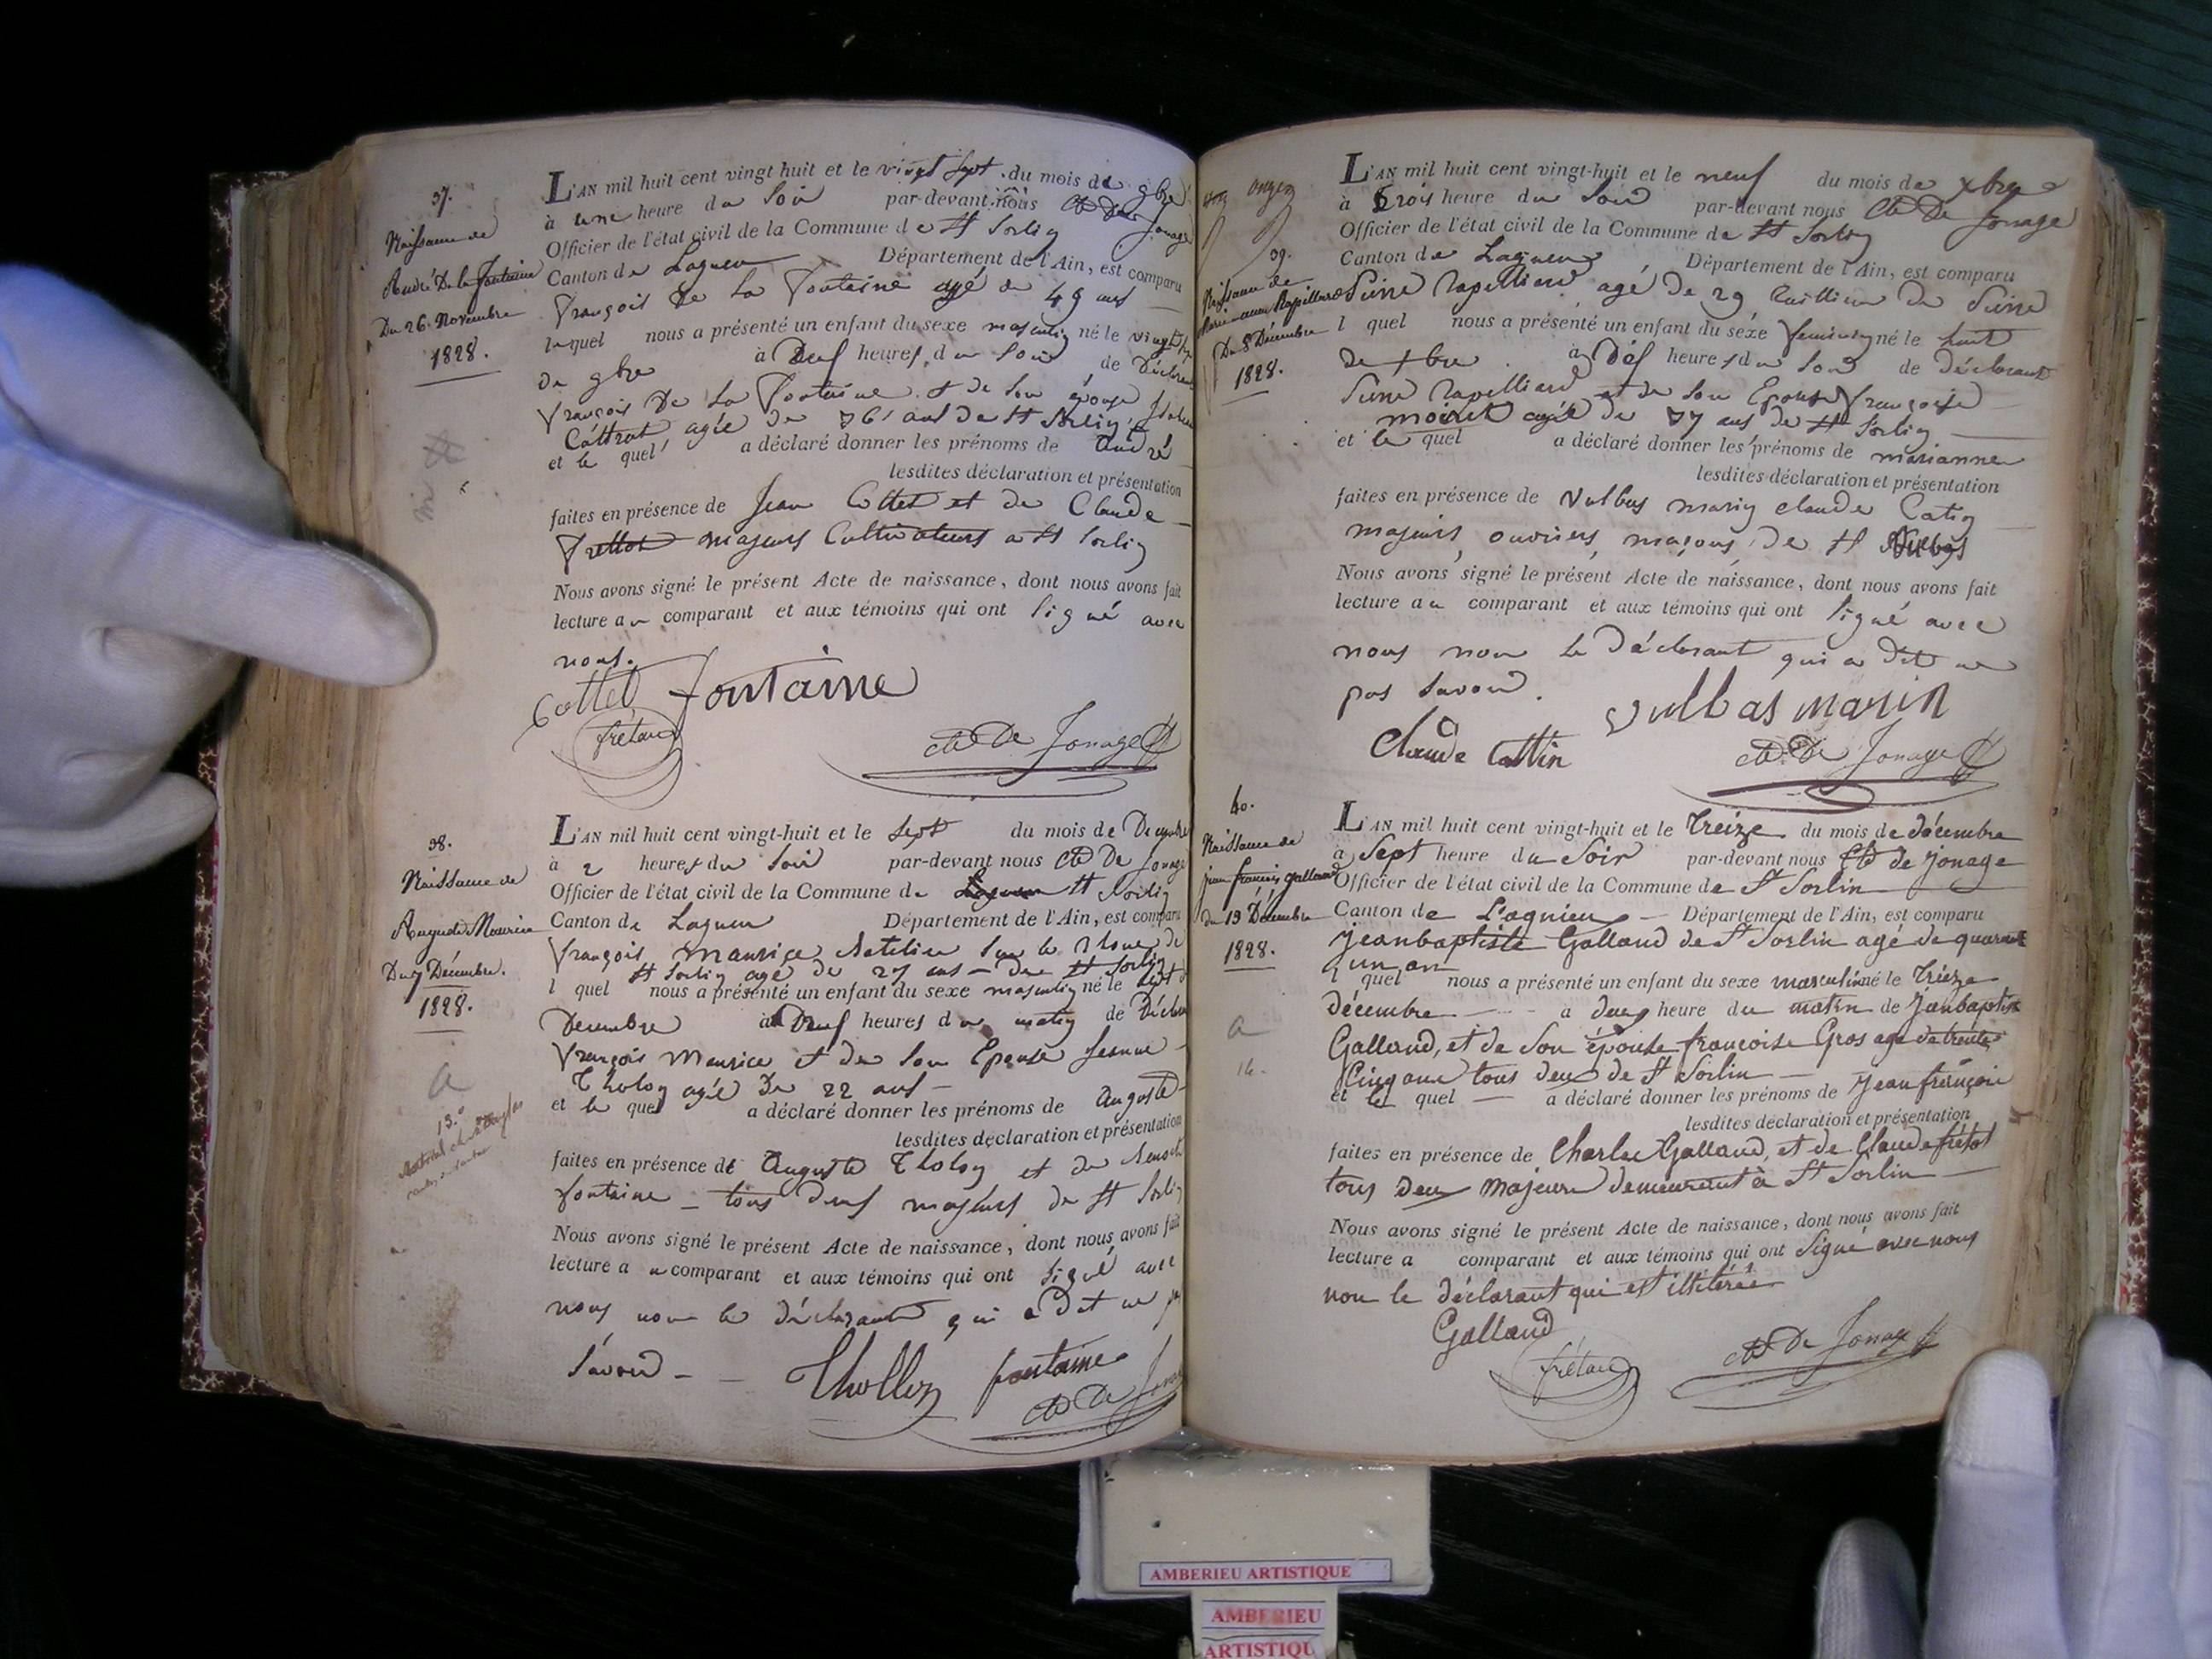 37.
Naissance de
André De la fontaine
Du 26. Novembre
1828.
L'AN mil huit cent vingt huit et le vingt Sept. du mois de 9bre
à une heure du Soir par-devant nous De Jonage
Officier de l'état civil de la Commune de St Sorlin
Canton de Lagneu Département de l'Ain, est comparu
françois De La Fontaine agé de 49 ans
lequel nous a présenté un enfant du sexe masculin né le vingt
de 9bre à Deux heures du Soir de Déclarant
françois De La Fontaine et de Son épouse
Cattrat, agée de 36 ans de St Sorlin,
et le quel a déclaré donner les prénoms de André
lesdites déclaration et présentation
faites en présence de Jean Cottet et de Claude
frettot majeurs Cultivateurs a St Sorlin
Nous avons signé le présent Acte de naissance, dont nous avons fait
lecture au comparant et aux témoins qui ont Signé avec
nous.
Cottet fontaine
frétaud De Jonage
38.
Naissance de
Auguste Maurice
Du 7 Décembre.
1828.
a
13.
L'AN mil huit cent vingt-huit et le Sept du mois de Decembre
à 2 heures du Soir par-devant nous De Jonage
Officier de l'état civil de la Commune de St Sorlin
Canton de Lagneu Département de l'Ain, est comparu
françois Maurice Batelier Sur le Rhone de
St Sorlin agé de 27 ans - de St Sorlin
l quel nous a présenté un enfant du sexe masculin né le Sept
Decembre à Deux heures du matin de Déclarant
françois Maurice et de Son Epouse Jeanne
Tholon agée De 22 ans -
et le quel a déclaré donner les prénoms de Auguste
lesdites déclaration et présentation
faites en présence de Auguste Tholon et de Benoit
fontaine - tous Deux majeurs de St Sorlin
Nous avons signé le présent Acte de naissance, dont nous avons fait
lecture a u comparant et aux témoins qui ont Signé avec
nous non le déclarant qui a Dit ne pas
Savoir - -
Thollon fontaine
De Jonage
39.
Naissance de
Marie-anne Rapilliard
Du 8 Décembre
1828.
L'AN mil huit cent vingt-huit et le neuf du mois de xbre
à trois heure du Soir par-devant nous De Jonage
Officier de l'état civil de la Commune de St Sorlin
Canton de Lagneu Département de l'Ain, est comparu
Rapilliard agé de 29
l quel nous a présenté un enfant du sexe feminin né le huit
de xbre à Dix heures du Soir de déclarant
Rapilliard et de Son Epouse françoise
agée de 37 ans de St Sorlin
et le quel a déclaré donner les prénoms de marianne
lesdites déclaration et présentation
faites en présence de Vulbas marin claude Catin
majeurs, ouvriers, maçons de St
Nous avons signé le présent Acte de naissance, dont nous avons fait
lecture a u comparant et aux témoins qui ont Signé avec
nous non le Déclarant qui a Dit ne
pas Savoir.
vulbas marin
Claude Cattin De Jonage
40.
Naissance de
jean françois galland
du 13 Décembre
1828.
a
L'AN mil huit cent vingt-huit et le Treize du mois de décembre
à Sept heure du Soir par-devant nous de Jonage
Officier de l'état civil de la Commune de St Sorlin
Canton de Lagnieu - Département de l'Ain, est comparu
Jeanbaptiste Galland de St Sorlin agé de quarante
un an
l quel nous a présenté un enfant du sexe masculin né le Treize
décembre a deux heure du matin de Janbaptiste
Galland, et de Son épouse françoise Gros agé de trente
Cinq ans tous deux de St Sorlin
et le quel a déclaré donner les prénoms de Jean françois
lesdites déclaration et présentation
faites en présence de Charle Galland, et de Claude frétot
tous Deux Majeurs demeurant à St Sorlin
Nous avons signé le présent Acte de naissance, dont nous avons fait
lecture a comparant et aux témoins qui ont Signé avec nous
non le déclarant qui est illiteré
Galland
frétaud De Jonage
AMBERIEU ARTISTIQUE
AMBERIEU
ARTISTIQU